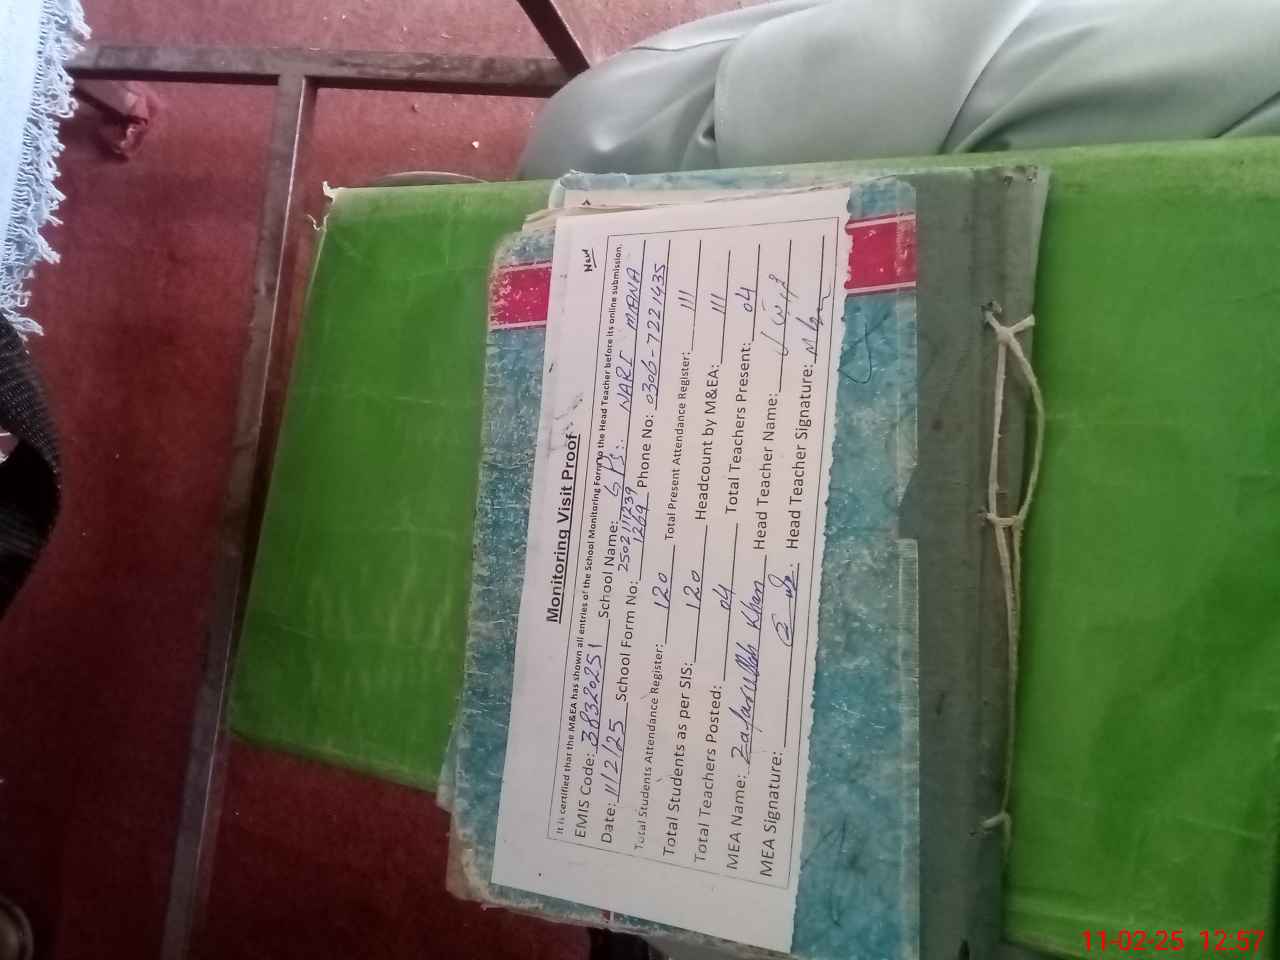 New
Monitoring Visit Proof
It is certified that the M&EA has shown all entries of the School Monitoring Form to the Head Teacher before its online submission.
EMIS Code: 38320251 School Name: GPS: NARI MANA
Date: 11/2/25 School Form No: 2502111239 1269 Phone No: 0306-7221435
Total Students Attendance Register: 120 Total Present Attendance Register: 111
Total Students as per SIS: 120 Headcount by M&EA: 111
Total Teachers Posted: 04 Total Teachers Present: 04
MEA Name: Zafarullah Khan Head Teacher Name:
MEA Signature: Head Teacher Signature:
11-02-25 12:57